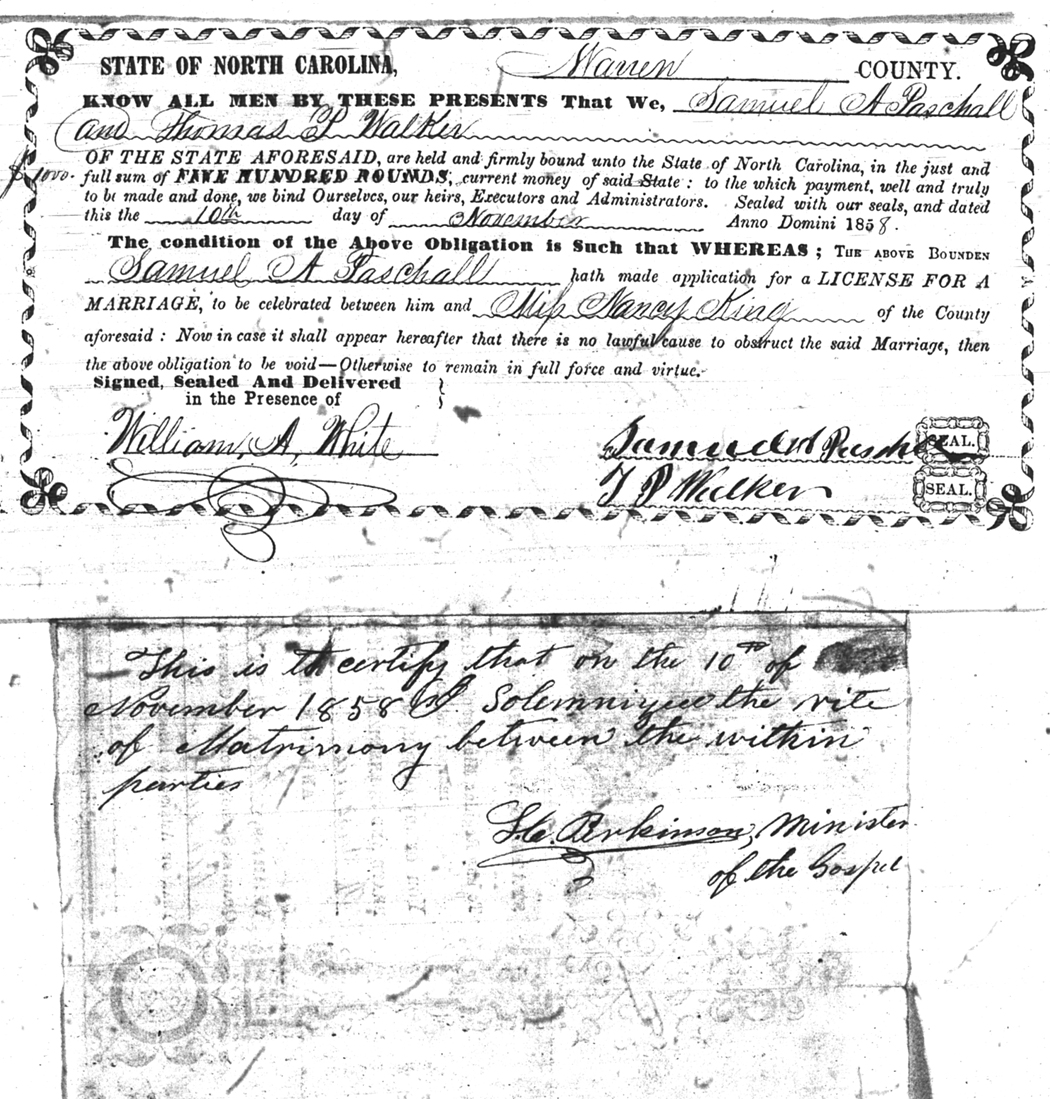 STATE OF NORTH CAROLINA, Warren COUNTY.
KNOW ALL MEN BY THESE PRESENTS That We, Samuel A Paschall
and Thomas P Walker
OF THE STATE AFORESAID, are held and firmly bound unto the State of North Carolina, in the just and
$1000. full sum of FIVE HUNDRED POUNDS, current money of said State : to the which payment, well and truly
to be made and done, we bind Ourselves, our heirs, Executors and Administrators. Sealed with our seals, and dated
this the 10th day of November Anno Domini 1858.
The condition of the Above Obligation is Such that WHEREAS ; THE ABOVE BOUNDEN
Samuel A Paschall hath made application for a LICENSE FOR A
MARRIAGE, to be celebrated between him and Miss Nancy King of the County
aforesaid : Now in case it shall appear hereafter that there is no lawful cause to obstruct the said Marriage, then
the above obligation to be void—Otherwise to remain in full force and virtue.
Signed, Sealed And Delivered
in the Presence of
William, A, White
Samuel A Pasch SEAL.
T P Walker SEAL.
This is to certify that on the 10th of
November 1858 I Solemnized the rite
of Matrimony between the within
parties
Perkinson, Minister
of the Gospel